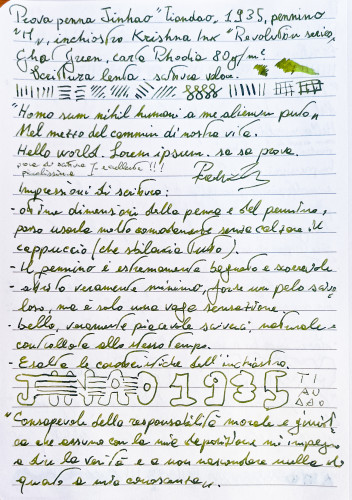 Prova penna Jinhao "Tiandao" 1935, pennino
"M", inchiostro Krishna Ink "Revolution series"
Ghat Green, carta Rhodia 80 g/m²
Scrittura lenta. scrittura veloce.
"Homo sum nihil humani a me alienum puto"
Nel mezzo del cammin di nostra vita.
Hello world. Lorem ipsum. sa sa prova.
prova di scrittura
Impressioni di scrittura:
- ottime dimensioni della penna e del pennino,
posso usarla molto comodamente senza calzare il
cappuccio (che sbilancia tutto).
- Il pennino è estremamente bagnato e scorrevole
- attrito veramente minimo, forse un pelo scivo
loso, ma è solo una vaga sensazione.
- bello, veramente piacevole scriverci, naturale e
controllato allo stesso tempo.
- Esalta le caratteristiche dell'inchiostro.
JINHAO 1935 TI
AN
DAO
"Consapevole della responsabilità morale e giuridi
ca che assumo con la mia deposizione mi impegno
a dire la verità e a non nascondere nulla di
quanto a mia conoscenza".